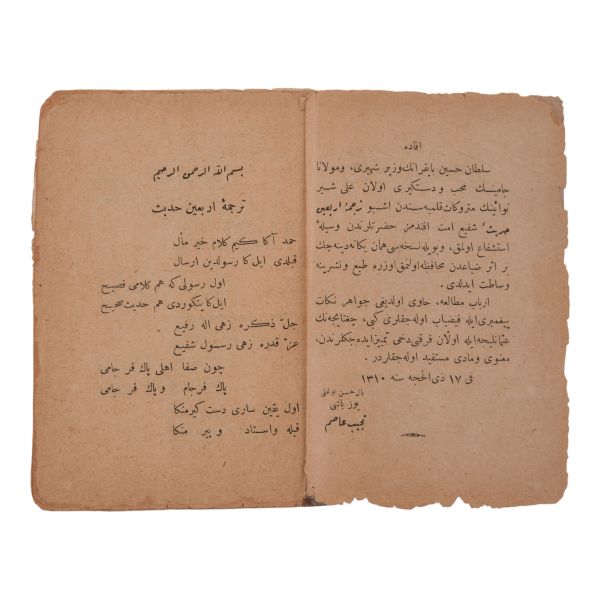 افاده
سلطان حسین بایقرانك وزیر شهیری، ومولانا
جامینك محب و دستكیری اولان علی شیر
نوائینك متروكات قلمیه سندن اشبو ترجمۀ اربعین
حدیث، شفیع امت افندمز حضرتلرندن وسیلۀ
استشفاع اولمق، وبویله نسخه سی همان یكانه دینه جك
بر اثر ضیاعدن محافظه اولنمق اوزره طبع ونشرینه
وساطت ایدلدی.
ارباب مطالعه، حاوی اولدیغی جواهر نكات
پیغمبری ایله فیضیاب اوله جقلری كبی، چغتایجه نك
عثمانلیجه ایله اولان فرقنی دخی تمییز ایده جكلرندن،
معنوی ومادی مستفید اوله جقلردر.
فی ١٧ ذی الحجه سنه ١٣١٠
بال حسن اوغلی
یوز باشی
نجیب عاصم
بسم الله الرحمن الرحیم
ترجمۀ اربعین حدیث
حمد آكا كیم كلام خیر مأل
قیلدی ایل كا رسولدین ارسال
اول رسولی كه هم كلامی فصیح
ایل كا یتكوردی هم حدیث صحیح
جلّ ذكره زهی اله رفیع
عزّ قدره زهی رسول شفیع
چون صفا اهلی پاك فر جامی
پاك فرجام و پاك فر جامی
اول یقین ساری دست كیر منكا
قبله واستاد و پیر منكا